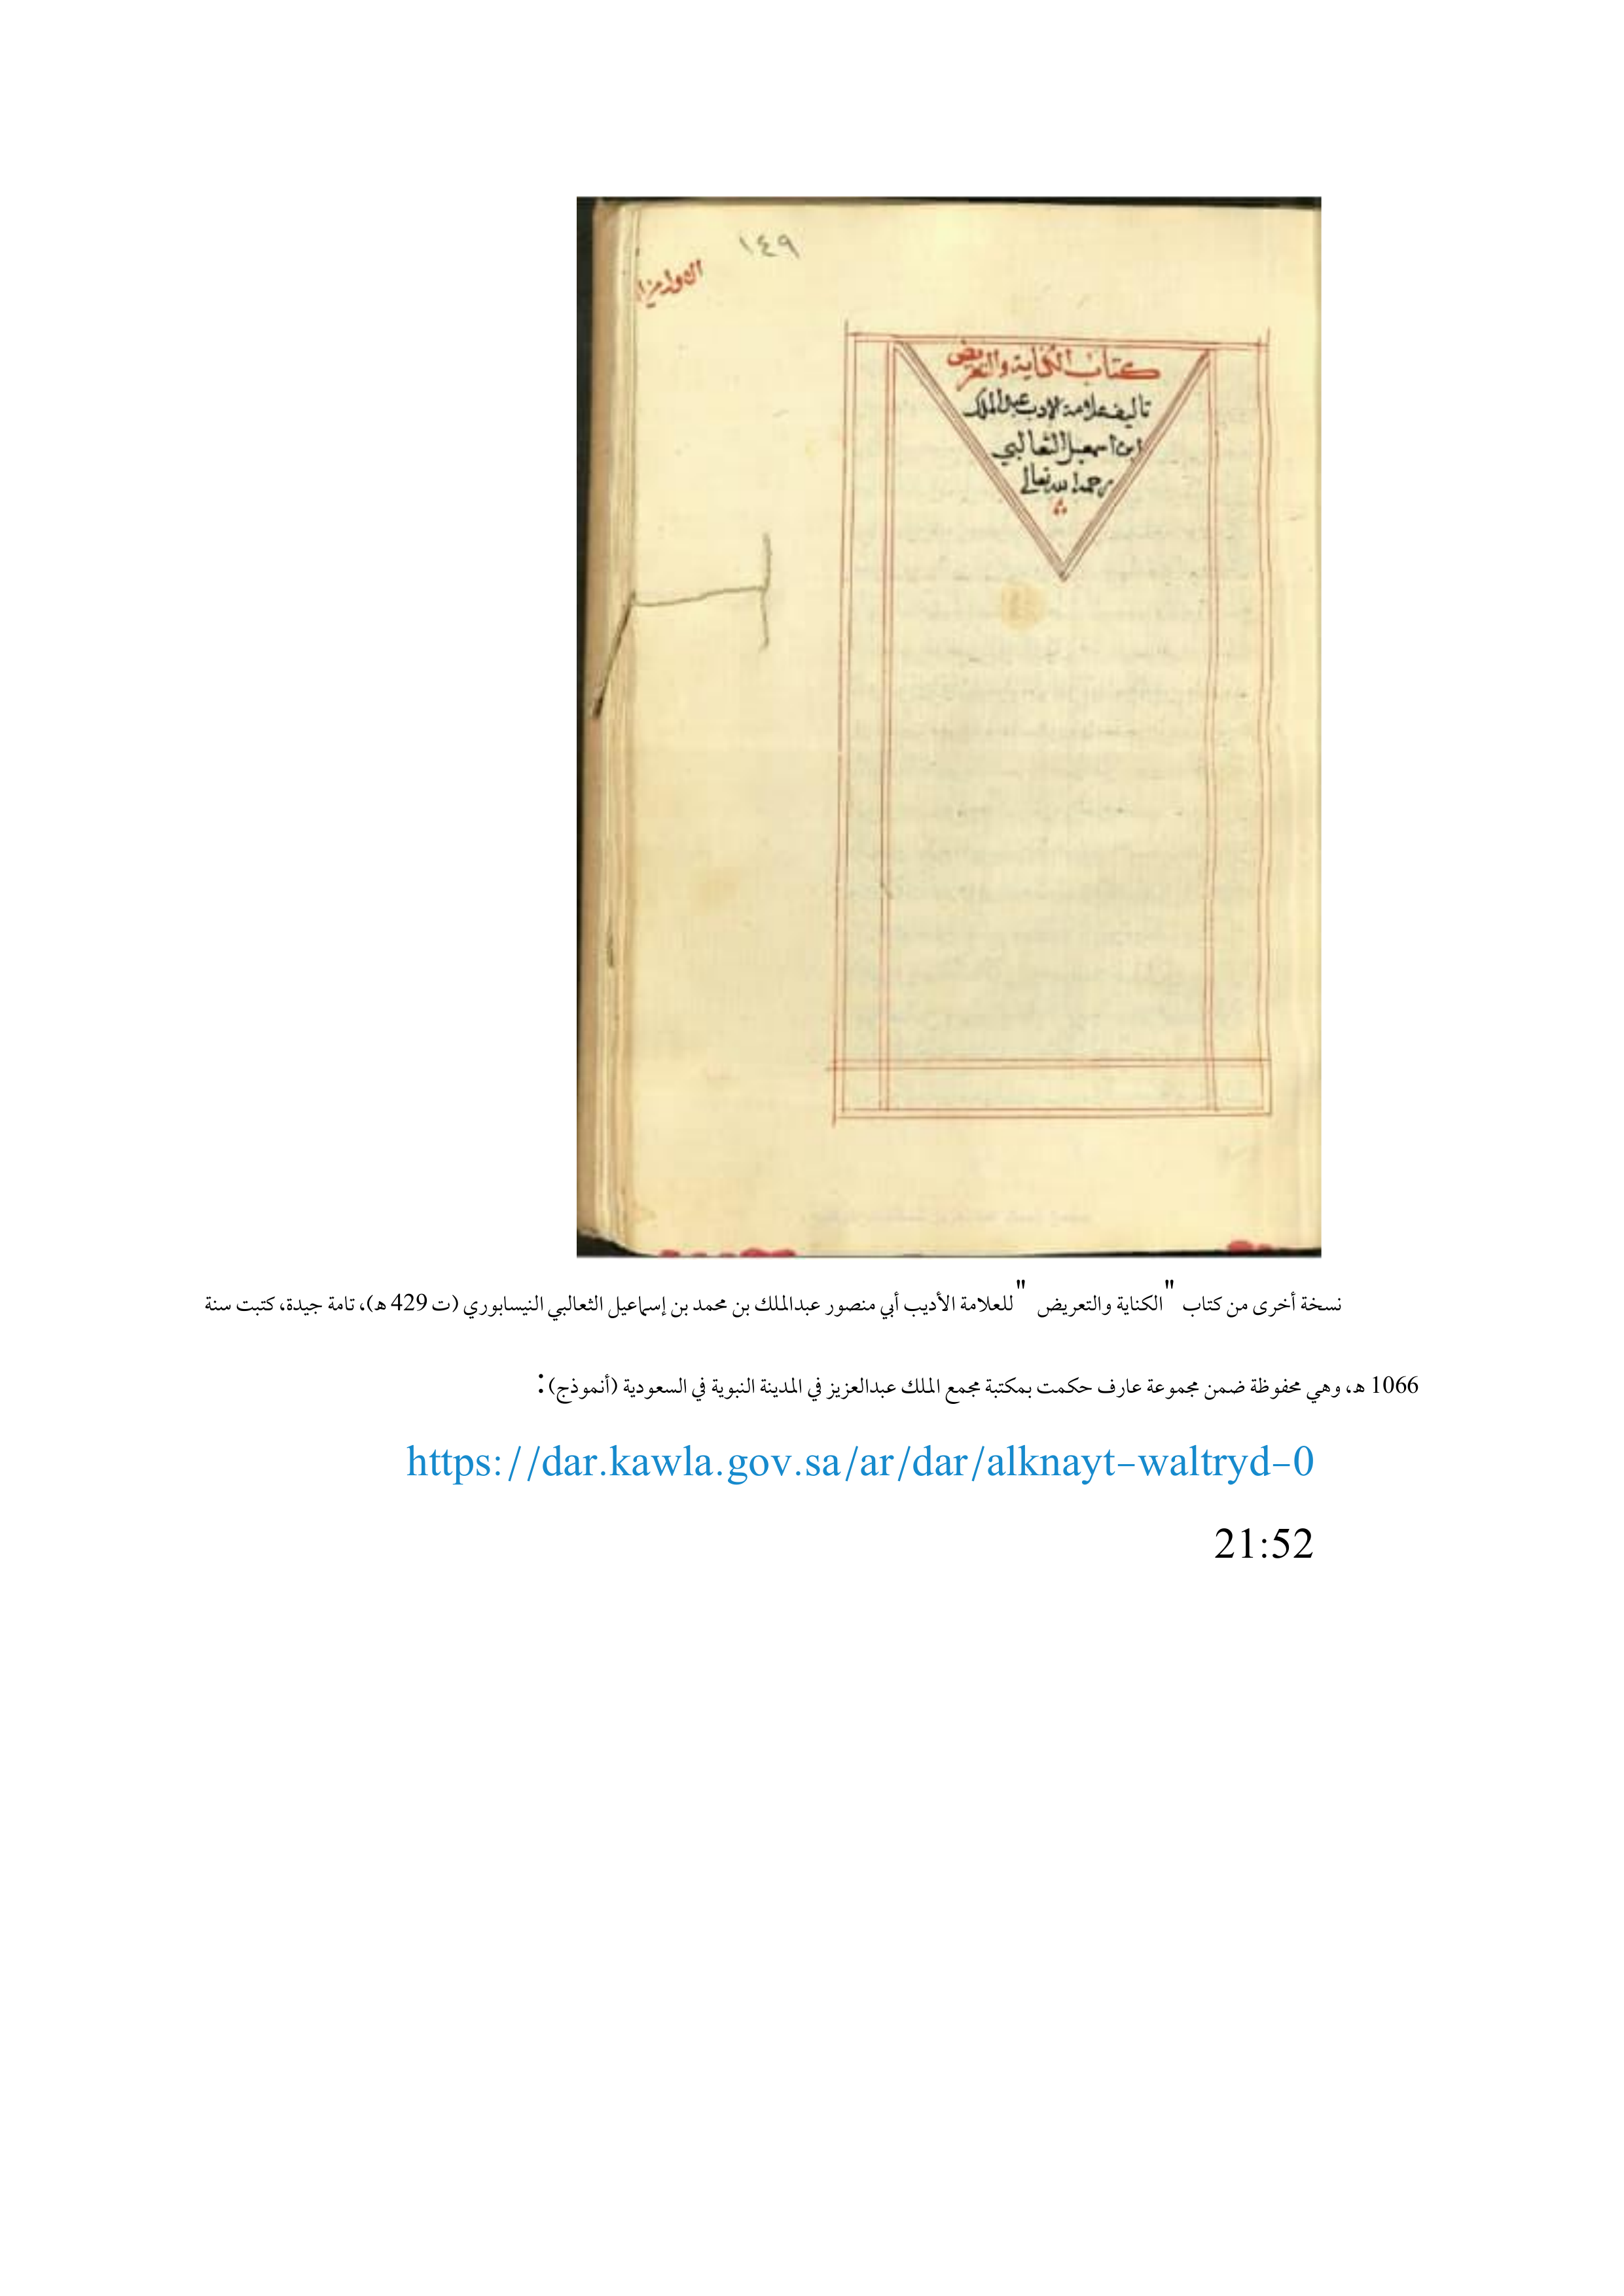 ١٤٩
كتاب الكناية والتعريض
تاليف علامة الادب عبد الملك
ابن اسمعيل الثعالبي
رحمه الله تعالى
نسخة أخرى من كتاب "الكناية والتعريض " للعلامة الأديب أبي منصور عبدالملك بن محمد بن إسماعيل الثعالبي النيسابوري (ت 429 هـ)، تامة جيدة، كتبت سنة
1066 هـ، وهي محفوظة ضمن مجموعة عارف حكمت بمكتبة مجمع الملك عبدالعزيز في المدينة النبوية في السعودية (أنموذج):
https://dar.kawla.gov.sa/ar/dar/alknayt-waltryd-0
21:52